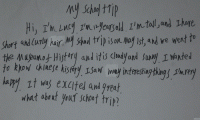 My school trip
Hi, I'm Lucy I'm 12 years old I'm tall, and I have
short and curly hair. My school trip is on May 1st, and we went to
the Museum of History and it is cloudy and sunny I wanted
to know chinese history. I saw many interesting things I'm very
happy. It was excited and great.
what about your school trip?